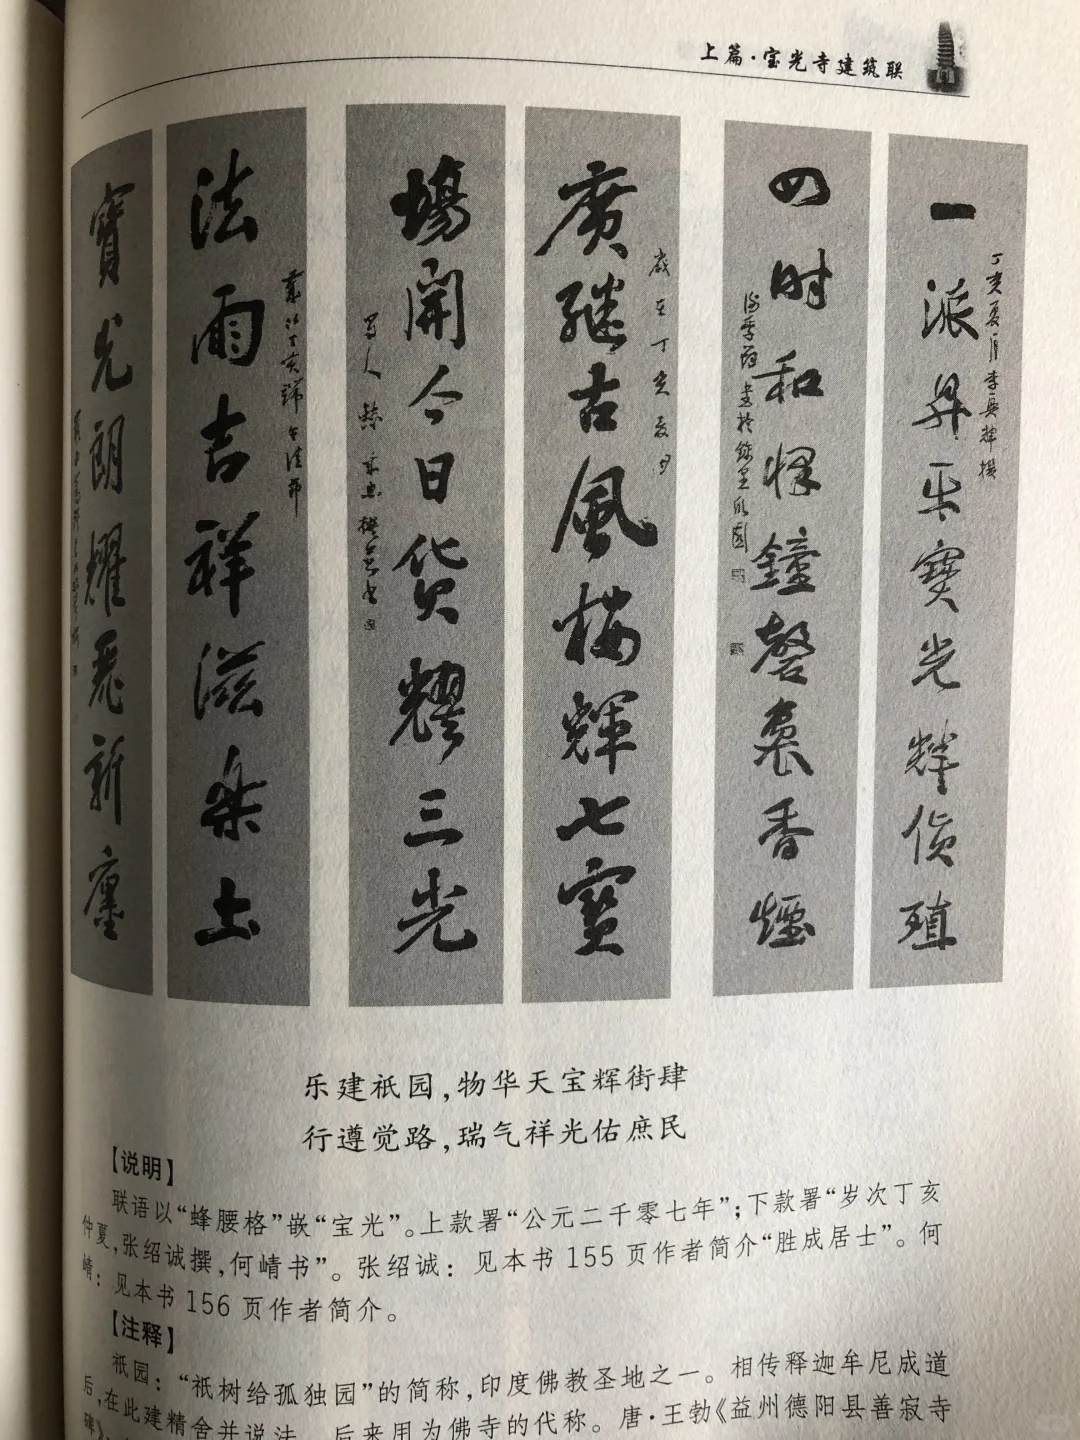 上篇·宝光寺建筑联
一派昇平寳光辉货殖
丁亥夏月李興辉撰
四时和怿鐘磬裊香煙
廣继古風楼輝七寳
歲在丁亥夏月
場開今日货耀三光
法雨吉祥滋樂土
寳光朗耀新廛
乐建祇园,物华天宝辉街肆
行遵觉路,瑞气祥光佑庶民
【说明】
联语以“蜂腰格”嵌“宝光”。上款署“公元二千零七年”;下款署“岁次丁亥
仲夏,张绍诚撰,何崝书”。张绍诚:见本书155页作者简介“胜成居士”。何
崝:见本书156页作者简介。
【注释】
祇园:“祇树给孤独园”的简称,印度佛教圣地之一。相传释迦牟尼成道
后,在此建精舍并说法。后来用为佛寺的代称。唐·王勃《益州德阳县善寂寺
碑》